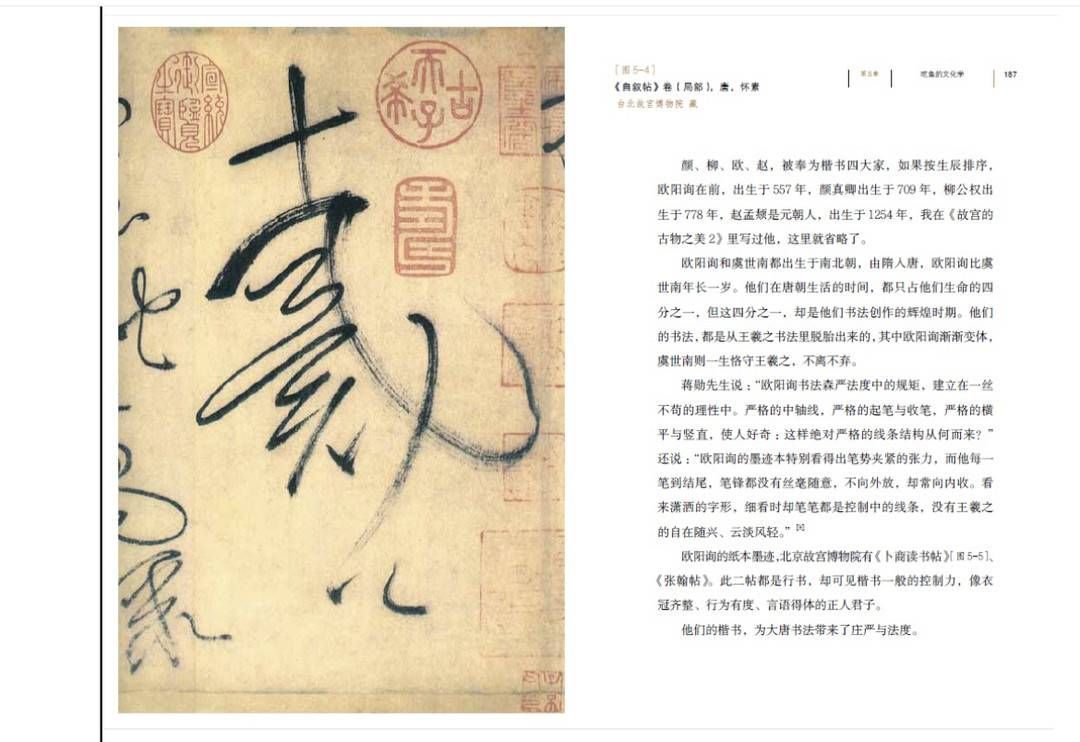 宣統御覽之寶
古希天子
壽
戴公
[图 5-4]
《自叙帖》卷〔局部〕，唐，怀素
台北故宫博物院 藏
第五章
吃鱼的文化学
187
颜、柳、欧、赵，被奉为楷书四大家，如果按生辰排序，
欧阳询在前，出生于 557 年，颜真卿出生于 709 年，柳公权出
生于 778 年，赵孟頫是元朝人，出生于 1254 年，我在《故宫的
古物之美 2》里写过他，这里就省略了。
欧阳询和虞世南都出生于南北朝，由隋入唐，欧阳询比虞
世南年长一岁。他们在唐朝生活的时间，都只占他们生命的四
分之一，但这四分之一，却是他们书法创作的辉煌时期。他们
的书法，都是从王羲之书法里脱胎出来的，其中欧阳询渐渐变体，
虞世南则一生恪守王羲之，不离不弃。
蒋勋先生说：“欧阳询书法森严法度中的规矩，建立在一丝
不苟的理性中。严格的中轴线，严格的起笔与收笔，严格的横
平与竖直，使人好奇：这样绝对严格的线条结构从何而来？”
还说：“欧阳询的墨迹本特别看得出笔势夹紧的张力，而他每一
笔到结尾，笔锋都没有丝毫随意，不向外放，却常向内收。看
来潇洒的字形，细看时却笔笔都是控制中的线条，没有王羲之
的自在随兴、云淡风轻。”
欧阳询的纸本墨迹，北京故宫博物院有《卜商读书帖》[图 5-5]、
《张翰帖》。此二帖都是行书，却可见楷书一般的控制力，像衣
冠齐整、行为有度、言语得体的正人君子。
他们的楷书，为大唐书法带来了庄严与法度。